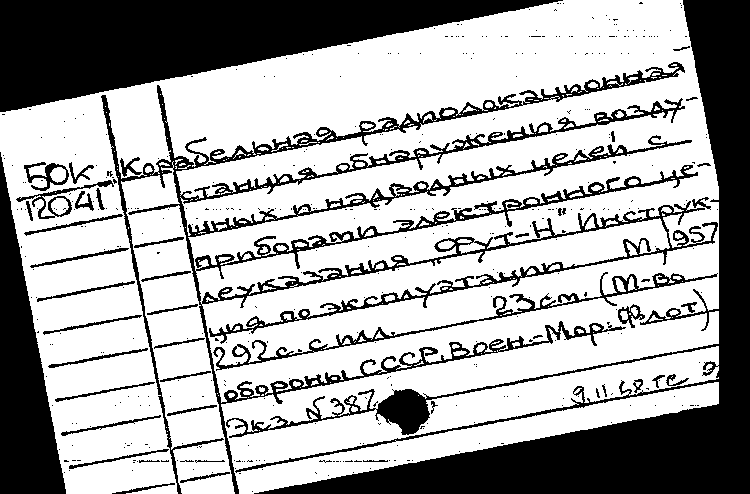 БОК
12041
„Корабельная радиолокационная
станция обнаружения возду-
шных и надводных целей с
приборами электронного це-
леуказания „Фут-Н". Инструк-
ция по эксплуатации. М., 1957
292 с. с илл. 23 см. (М-во
обороны СССР. Воен.-Мор. Флот)
Экз. №387
9.11.68.те